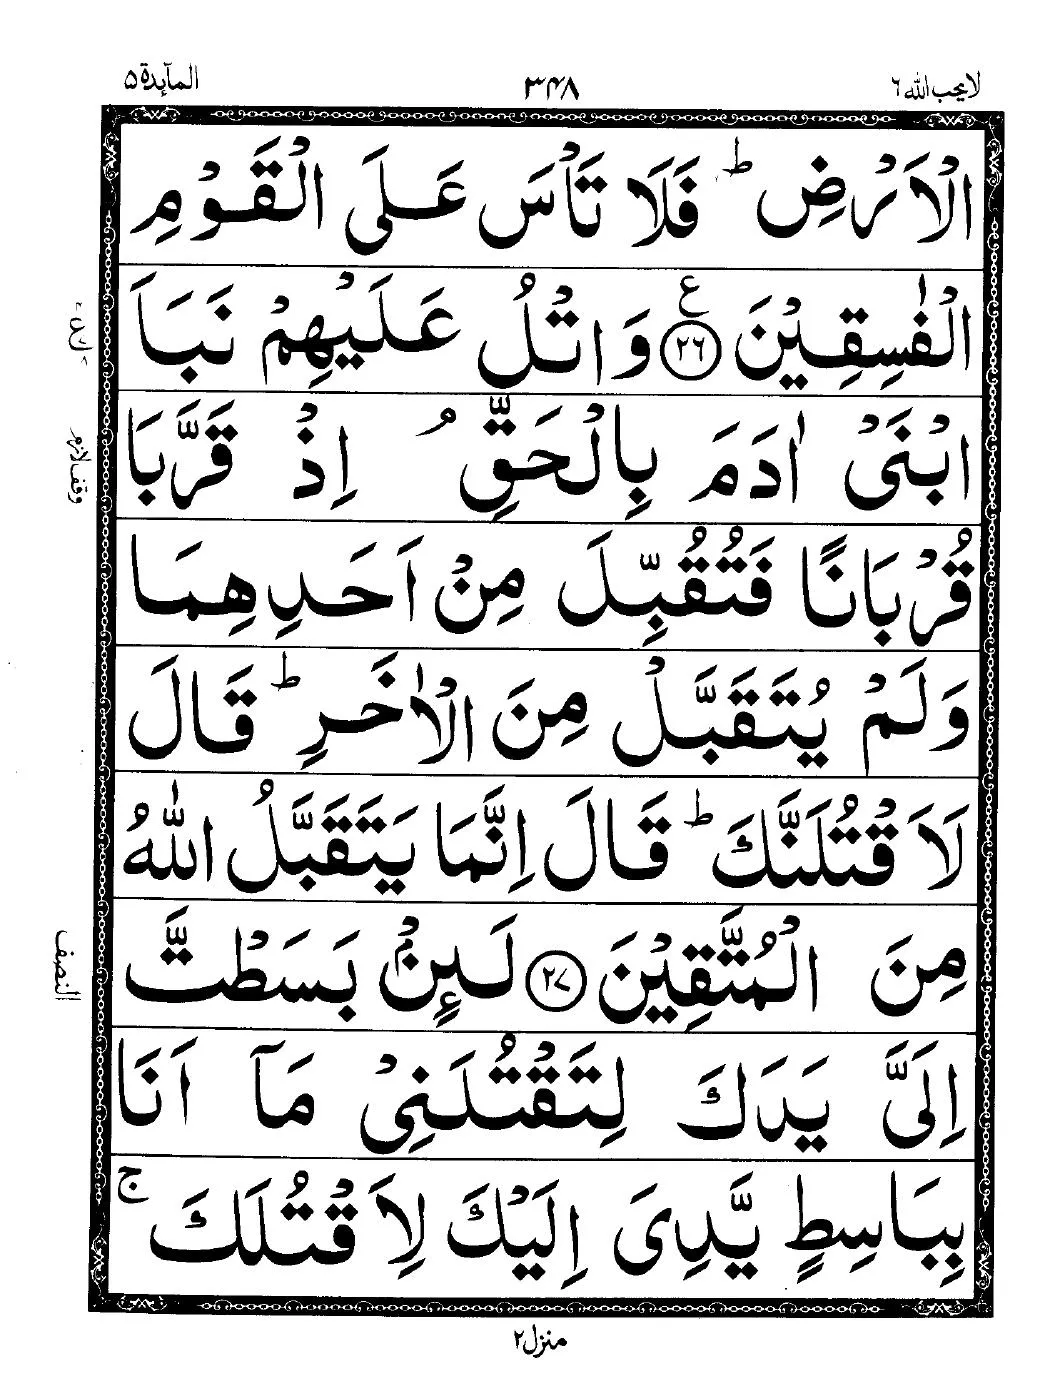 لا يحب الله ٦
٣٤٨
المآىِٕدة ٥
الْاَرْضِ ؕ فَلَا تَاْسَ عَلَى الْقَوْمِ
الْفٰسِقِيْنَ ۧ ﴿۲۶﴾ وَ اتْلُ عَلَيْهِمْ نَبَاَ
ابْنَیْ اٰدَمَ بِالْحَقِّ ۘ اِذْ قَرَّبَا
قُرْبَانًا فَتُقُبِّلَ مِنْ اَحَدِهِمَا
وَلَمْ يُتَقَبَّلْ مِنَ الْاٰخَرِ ؕ قَالَ
لَاَقْتُلَنَّكَ ؕ قَالَ اِنَّمَا يَتَقَبَّلُ اللّٰهُ
مِنَ الْمُتَّقِيْنَ ﴿۲۷﴾ لَىِٕنْۢ بَسَطْتَّ
اِلَیَّ يَدَكَ لِتَقْتُلَنِیْ مَاۤ اَنَا
بِبَاسِطٍ يَّدِیَ اِلَيْكَ لِاَقْتُلَكَ ۚ
وقف لازم
النصف
منزل ۲